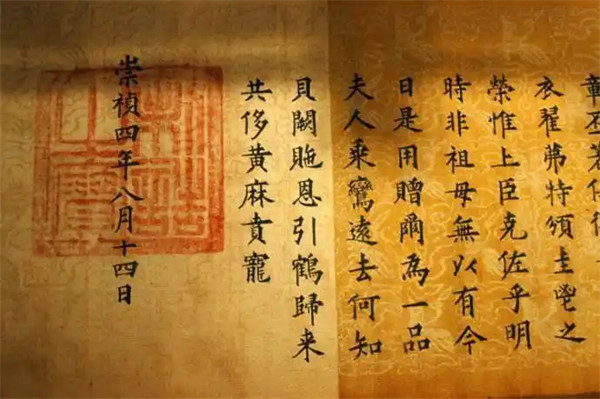 章丕著
衣翟茀特頒圭鬯之
榮惟上臣克佐乎明
時非祖母無以有今
日是用贈爾為一品
夫人乘鸞遠去何知
貝闕貤恩引鶴歸来
共侈黄麻賁寵
崇禎四年八月十四日
制誥
之寶